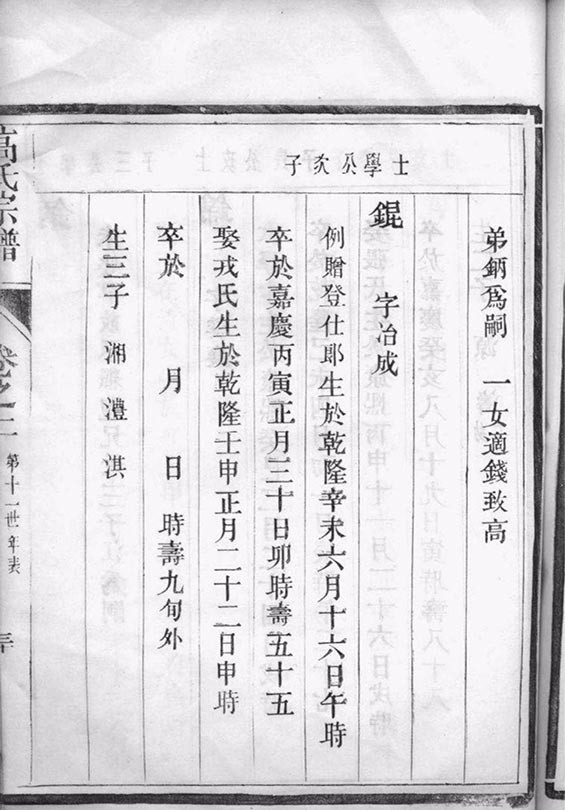 弟鈵爲嗣　一女適錢致高
士學公次子
錕　字冶成
例贈登仕郎生於乾隆辛未六月十六日午時
卒於嘉慶丙寅正月三十日卯時壽五十五
娶戎氏生於乾隆壬申正月二十二日申時
卒於　月　日　時壽九旬外
生三子　湘　澧　淇
高氏宗譜
卷之二
第十一世年表